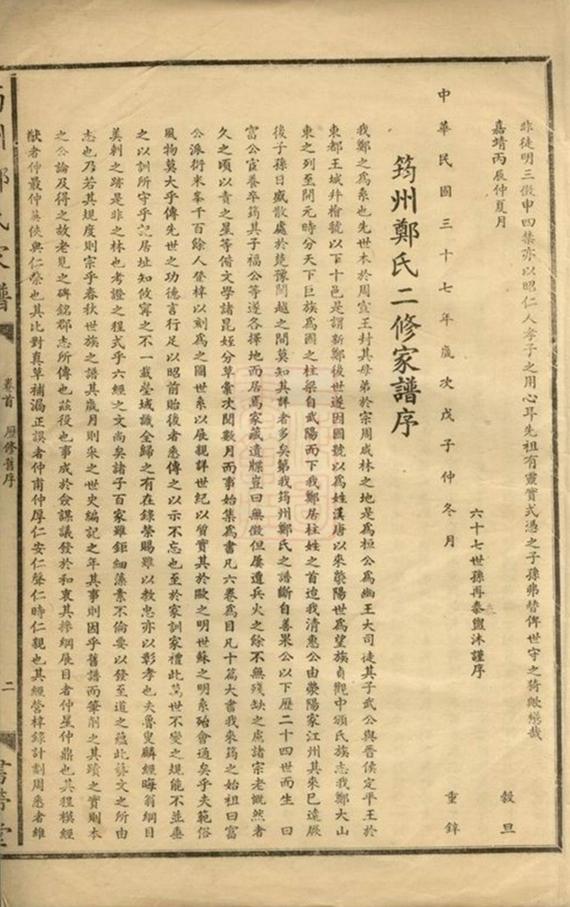 非徒明三徵中四集亦以昭仁人孝子之用心耳先祖有靈實式憑之子孫弗替俾世守之猗歟懋哉
嘉靖丙辰仲夏月 穀旦
六十七世孫再泰盥沐謹序
中華民國三十七年歲次戊子仲冬月 重鋟
筠州鄭氏二修家譜序
我鄭之為系也先世本於周宣王封其母弟於宗周咸林之地是為桓公為幽王大司徒其子武公與晉侯定平王於
東都王城幷檜虢以下十邑是謂新鄭後世遂因國號以為姓漢唐以來滎陽世為望族貞觀中頒氏族志我鄭大山
東之列至開元時分天下巨族為國之柱梁自武陽而下我鄭居柱姓之首迨我清惠公由滎陽家江州其來已遠厥
後子孫日盛散處於楚豫閩越之間莫知其詳者多矣第我筠州鄭氏之譜斷自善果公以下歷二十四世而生曰
富公宦養卒筠其子福公等遂各擇地而居焉家藏遺牒豈曰無徵但屢遭兵火之餘不無殘缺之處諸宗老慨然者
久之頃以貴之星等偕文學諸昆姪分草彙次閱數月而事始集為書凡六卷為目凡十篇大書我來筠之始祖曰富
公派衍來峯千百餘人登梓以刻為之圖世系以展親詳世紀以質實其於歐之明世蘇之明系殆會通矣乎夫範俗
風物莫大乎傳先世之功德言行足以昭前貽後者悉傳之以示不忘也至於家訓家禮此萬世不變之規能不並垂
之以訓所守乎記居址知攸寧之不一載塋域識全歸之有在錄榮賜雖以教忠亦以彰孝也夫魯叟麟經晦翁綱目
美刺之跡是非之林也考證之程式乎六經之文尚矣諸子百家雖鉅細藻素不倫要以發至道之蘊此藝文之所由
志也乃若其規度則宗乎春秋世族之譜其歲月則宋之世史編記之年其事則因乎舊譜而筆削之其蹟之實則本
之公論及得之故老見之碑銘郡志所傳也茲役也事成於僉謀議發於和衷其掺綱展目者仲星仲鼎也其程模經
猷者仲最仲英俠與仁榮也其比對真草補漏正誤者仲甫仲厚仁安仁聲仁時仁親也其經營梓錄計劃周悉者維
筠州鄭氏家譜 卷首 歷修舊序 二 書帶堂